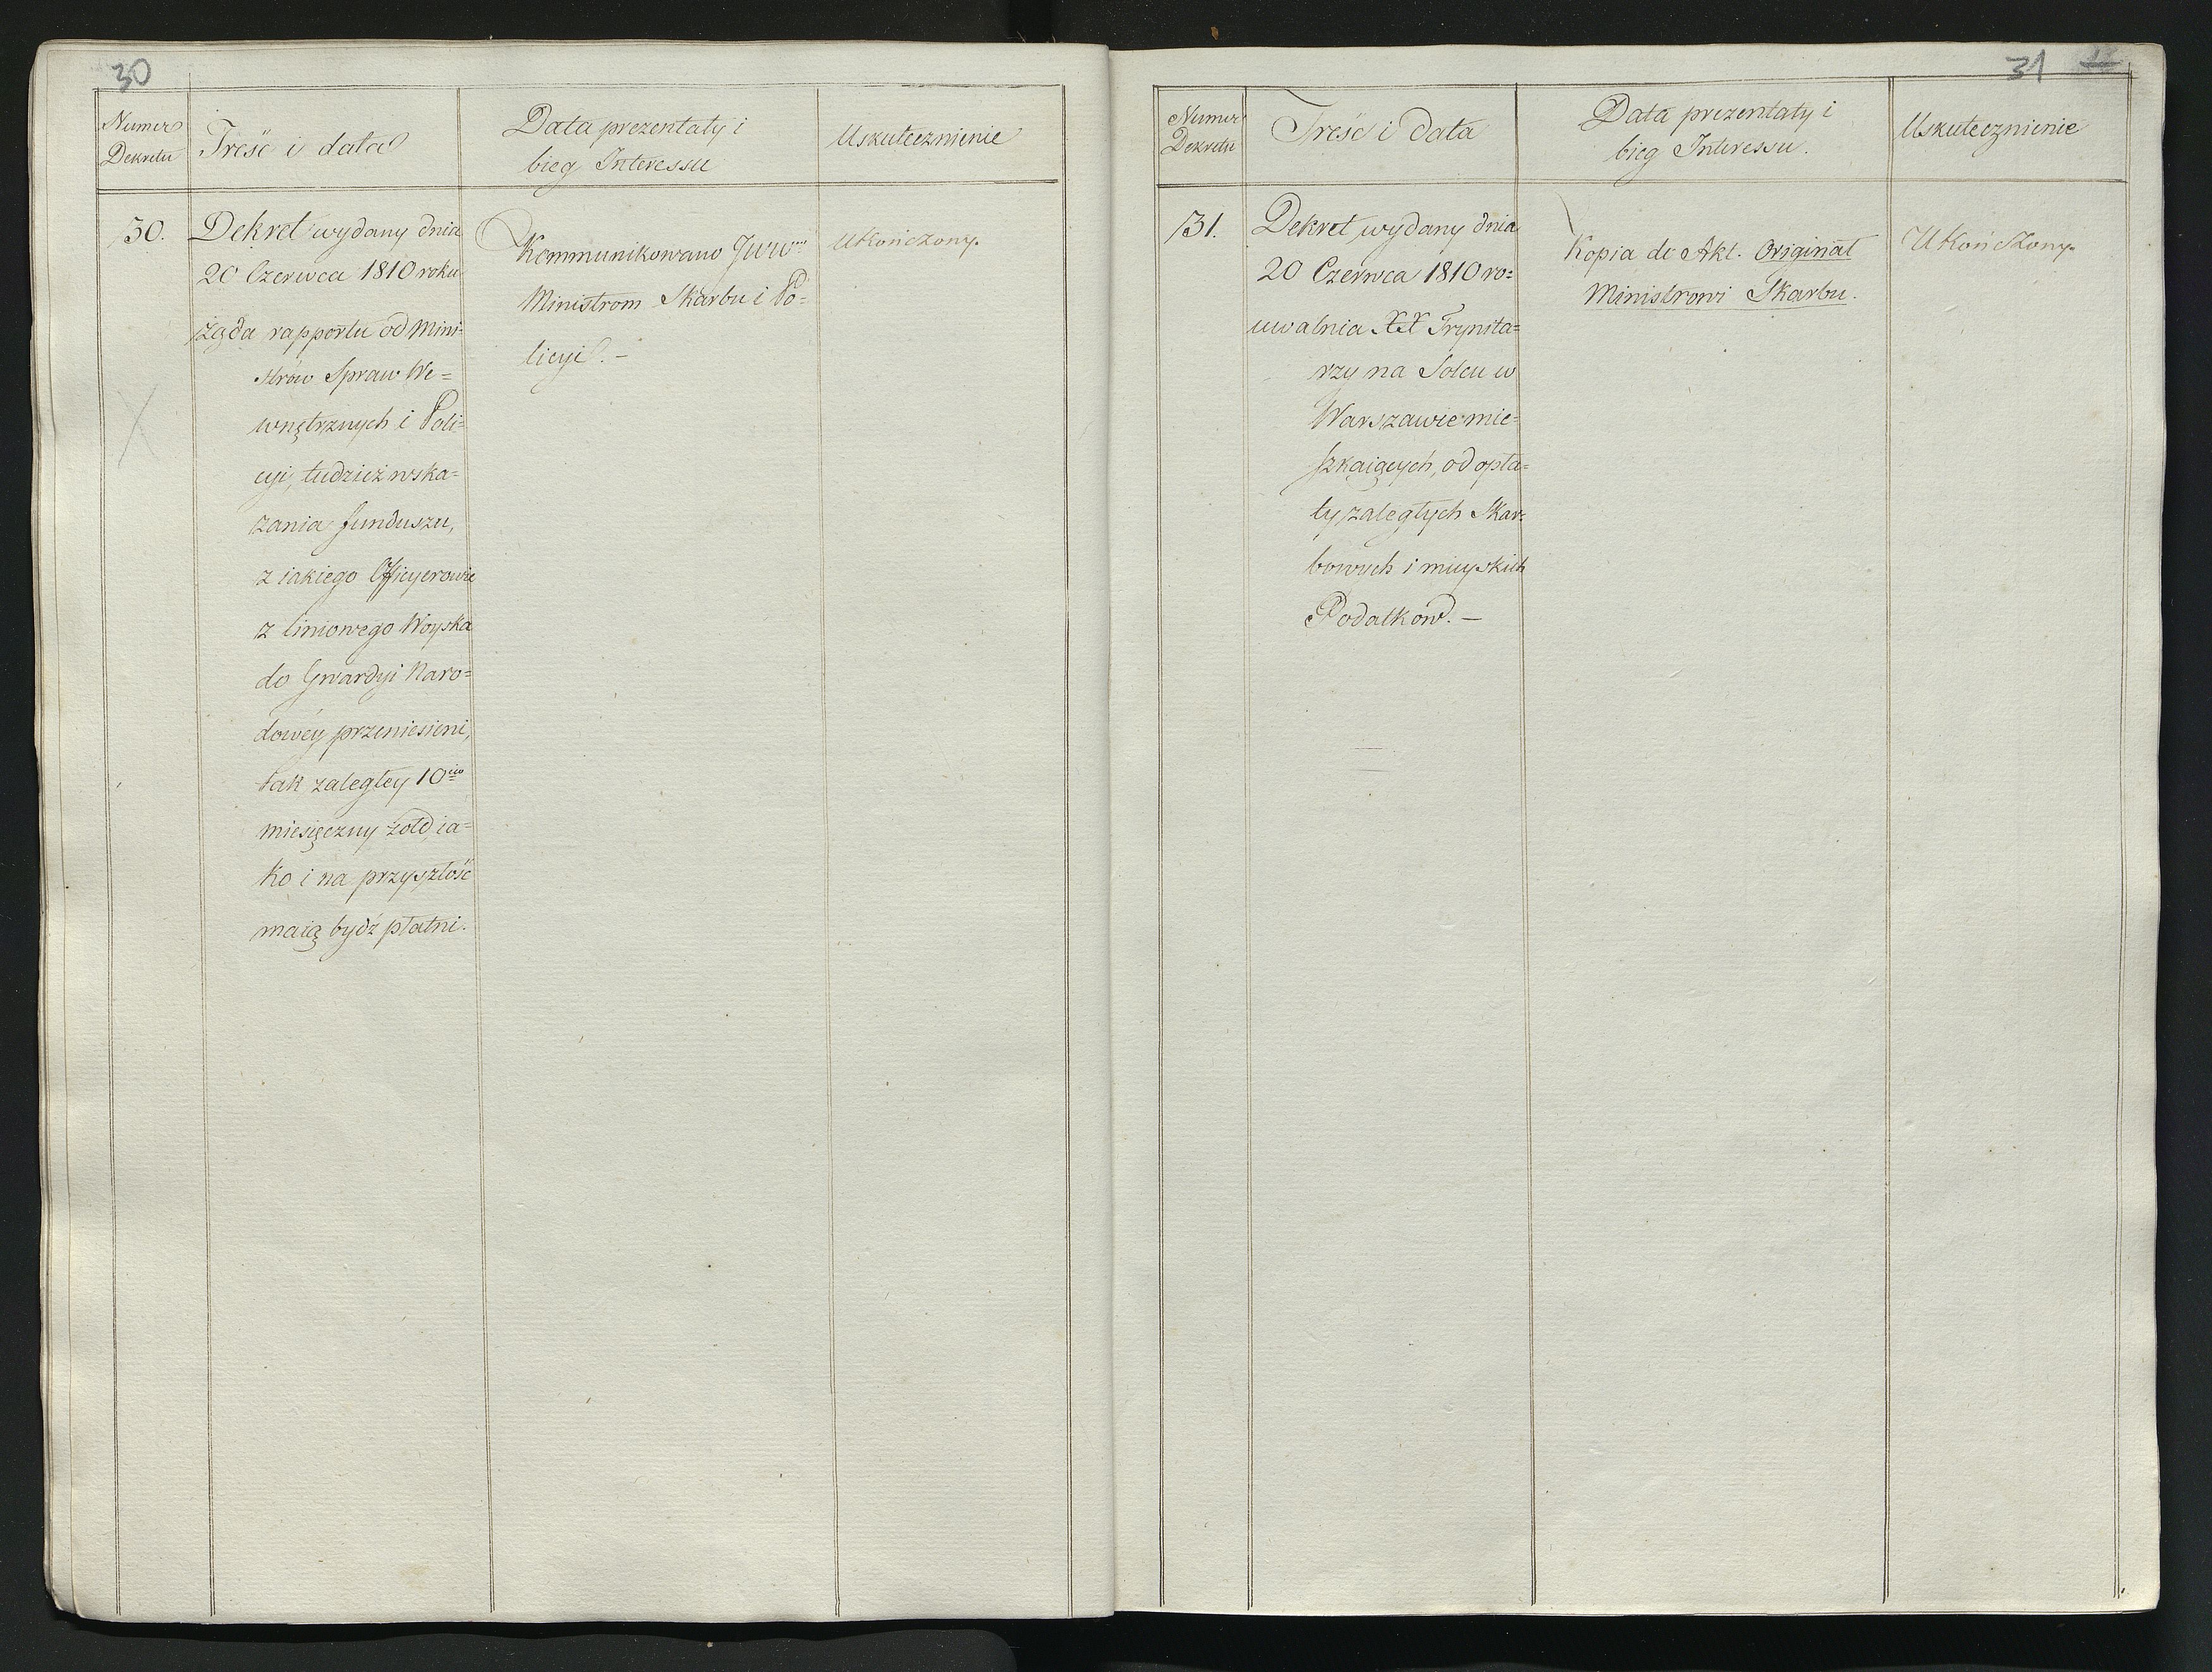 30
Numer
Dekretu
Treść i data
Data prezentaty i
bieg Interessu
Uskutecznienie
30.
Dekret wydany dnia
20 Czerwca 1810 roku
żąda rapportu od Mini=
strów Spraw We=
wnętrznych i Poli=
cyi, tudzież wska=
zania funduszu,
z iakiego Officyerowie
z liniowego Woyska
do Gwardyi Naro=
dowéy przeniesieni,
tak zaległey 10cio
miesięczny żołd, ia=
ko i na przyszłość
maią bydź płatni.
Kommunikowano JWW
Ministrom Skarbu i Po=
licyi. –
Ukończony.
31
Numer
Dekretu
Treść i data
Data prezentaty i
bieg Interessu.
Uskutecznienie
31.
Dekret wydany dnia
20 Czerwca 1810 ro=
uwalnia XX Trynita=
rzy na Solcu w
Warszawie mie=
szkaiących, od opła=
ty zaległych Skar=
bowych i mieyskich
Podatków. –
Kopia do Akt. Originał
Ministrowi Skarbu.
Ukończony.